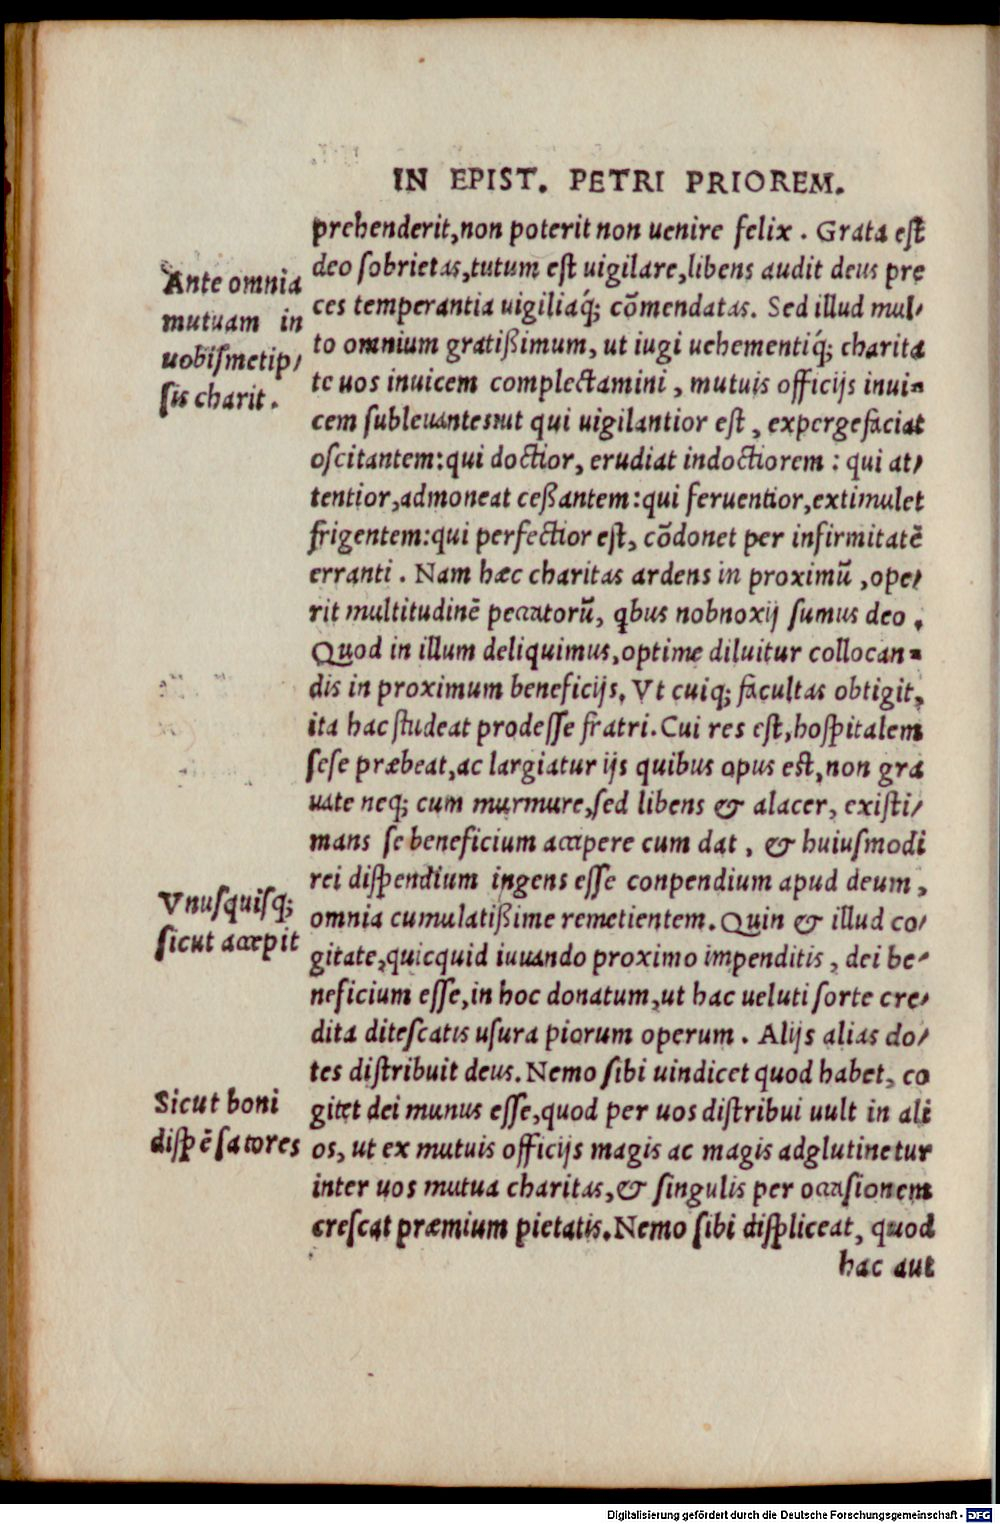 IN EPIST. PETRI PRIOREM.
prehenderit, non poterit non uenire felix. Grata est
deo sobrietas, tutum est uigilare, libens audit deus pre
ces temperantia uigiliaq́; cōmendatas. Sed illud mul/
to omnium gratißimum, ut iugi uehementiq́; charita
te uos inuicem complectamini, mutuis officijs inui-
cem subleuantes: ut qui uigilantior est, expergefaciat
oscitantem: qui doctior, erudiat indoctiorem: qui at/
tentior, admoneat ceßantem: qui feruentior, extimulet
frigentem: qui perfectior est, cōdonet per infirmitatē
erranti. Nam hæc charitas ardens in proximū, ope/
rit multitudinē peccatorū, ꝗbus nobnoxij sumus deo.
Quod in illum deliquimus, optime diluitur collocan-
dis in proximum beneficijs. Vt cuiq; facultas obtigit,
ita hac studeat prodesse fratri. Cui res est, hospitalem
sese præbeat, ac largiatur ijs quibus opus est, non gra
uate neq; cum murmure, sed libens & alacer, existi/
mans se beneficium accipere cum dat, & huiusmodi
rei dispendium ingens esse conpendium apud deum,
omnia cumulatißime remetientem. Quin & illud co/
gitate, quicquid iuuando proximo impenditis, dei be-
neficium esse, in hoc donatum, ut hac ueluti sorte cre/
dita ditescatis usura piorum operum. Alijs alias do/
tes distribuit deus. Nemo sibi uindicet quod habet, co
gitet dei munus esse, quod per uos distribui uult in ali
os, ut ex mutuis officijs magis ac magis adglutinetur
inter uos mutua charitas, & singulis per occasionem
crescat præmium pietatis. Nemo sibi displiceat, quod
hac aut
Ante omnia
mutuam in
uobismetip/
sis charit.
Vnusquisq;
sicut accepit
Sicut boni
dispēsatores
Digitalisierung gefördert durch die Deutsche Forschungsgemeinschaft - DFG